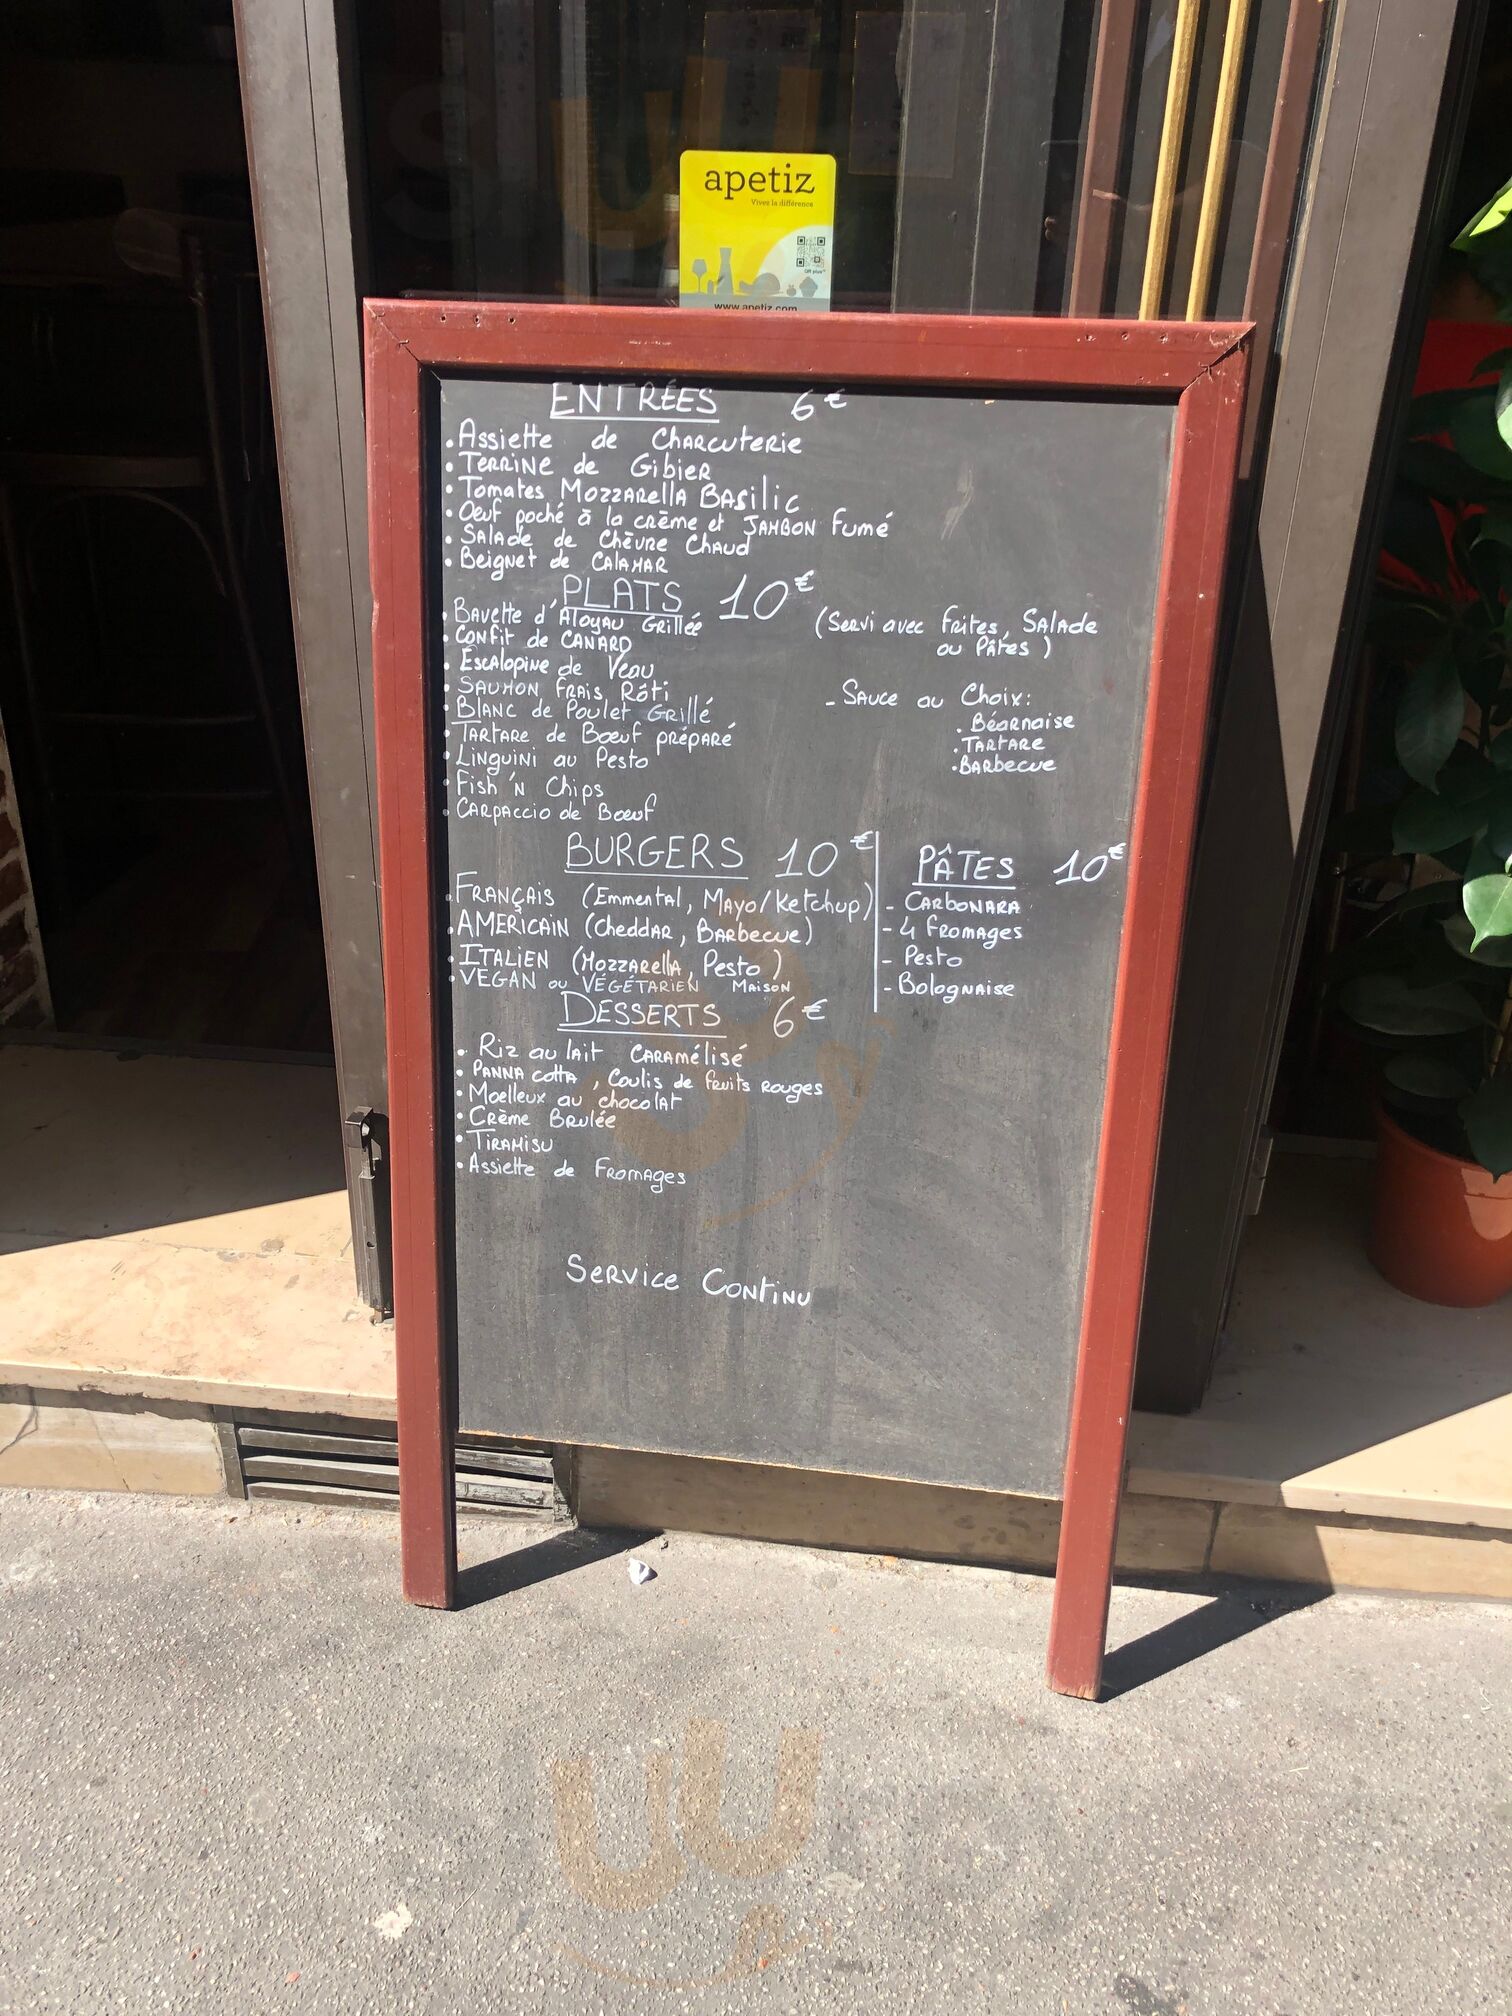 apetiz
Vivez la différence
www.apetiz.com
ENTRÉES 6€
• Assiette de Charcuterie
• Terrine de Gibier
• Tomates Mozzarella Basilic
• Oeuf poché à la crème et Jambon fumé
• Salade de Chèvre Chaud
• Beignet de Calamar
PLATS 10€
• Bavette d'Aloyau Grillée
• Confit de Canard
• Escalopine de Veau
• Saumon frais Rôti
• Blanc de Poulet Grillé
• Tartare de Boeuf préparé
• Linguini au Pesto
• Fish 'N Chips
• Carpaccio de Boeuf
(Servi avec frites, Salade
ou Pâtes)
- Sauce au Choix:
. Béarnaise
. Tartare
. Barbecue
BURGERS 10€
• Français (Emmental, Mayo/Ketchup)
• Américain (Cheddar, Barbecue)
• Italien (Mozzarella, Pesto)
• Vegan ou Végétarien Maison
PÂTES 10€
- Carbonara
- 4 fromages
- Pesto
- Bolognaise
DESSERTS 6€
• Riz au lait Caramélisé
• Panna cotta, Coulis de fruits rouges
• Moelleux au chocolat
• Crème Brulée
• Tiramisu
• Assiette de Fromages
Service Continu